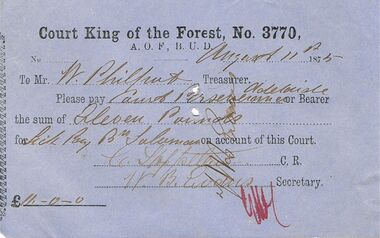 Court King of the Forest, No. 3770,
A. O. F., B. U. D.
No August 11th 1875
To Mr. W. Philpot Treasurer. Adelaide
Please pay Court Perseverance or Bearer
the sum of Eleven Pounds
for Sick Pay Bro Solomon on account of this Court.
C. R.
W. B. Evans Secretary.
£11-0-0